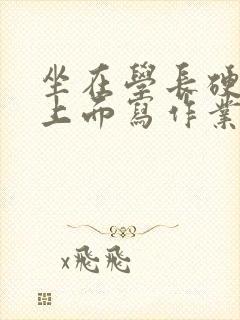 坐在學長硬
上而寫作業
x飛飛